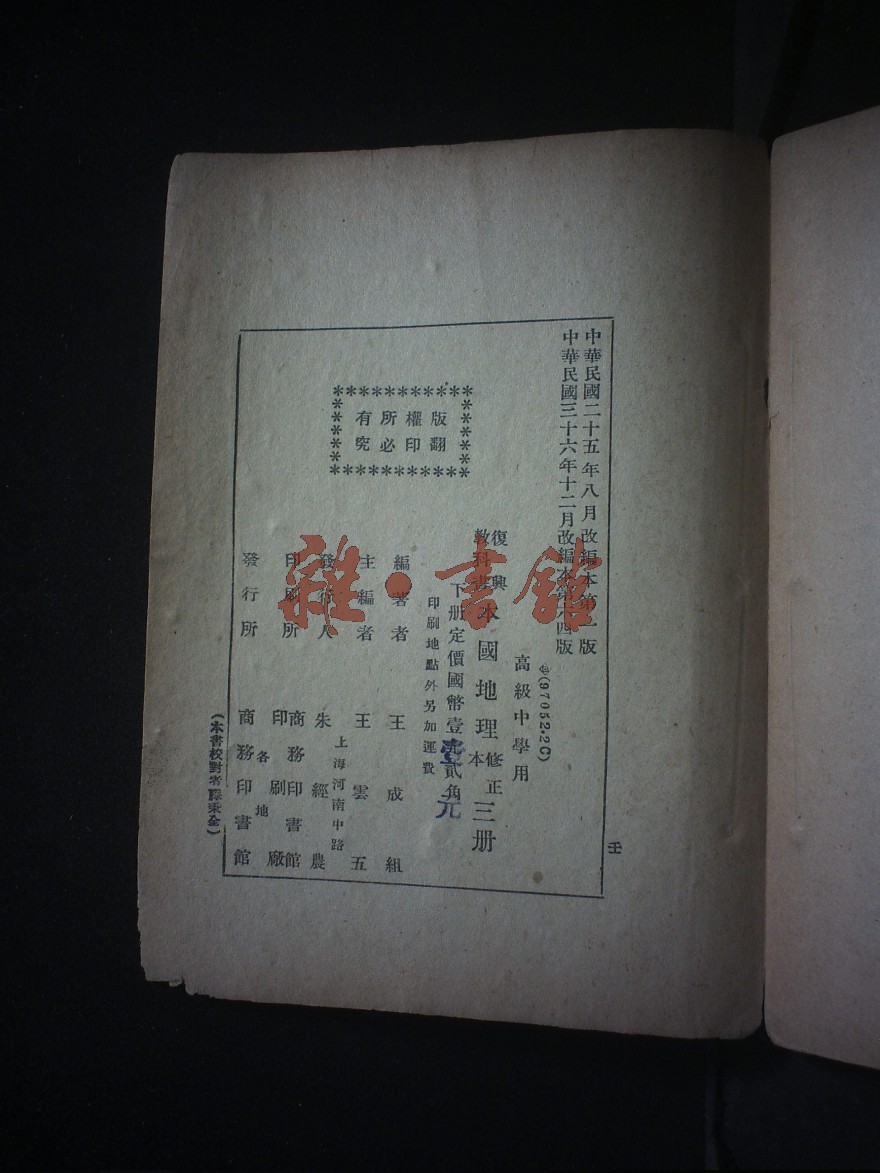 中華民國二十五年八月改編本第一版
中華民國三十六年十二月改編本第六四版
(97052·2C)
高級中學用
復興
教科書
本國地理
修正
本
三册
下册定價國幣壹元貳角
壹
元
印刷地點外另加運費
版權所有
翻印必究
編著者 王成組
主編者 王雲五
上海河南中路
發行人 朱經農
印刷所 商務印書館
印刷廠
發行所 各地
商務印書館
(本書校對者 秉全)
壬
雜·書館